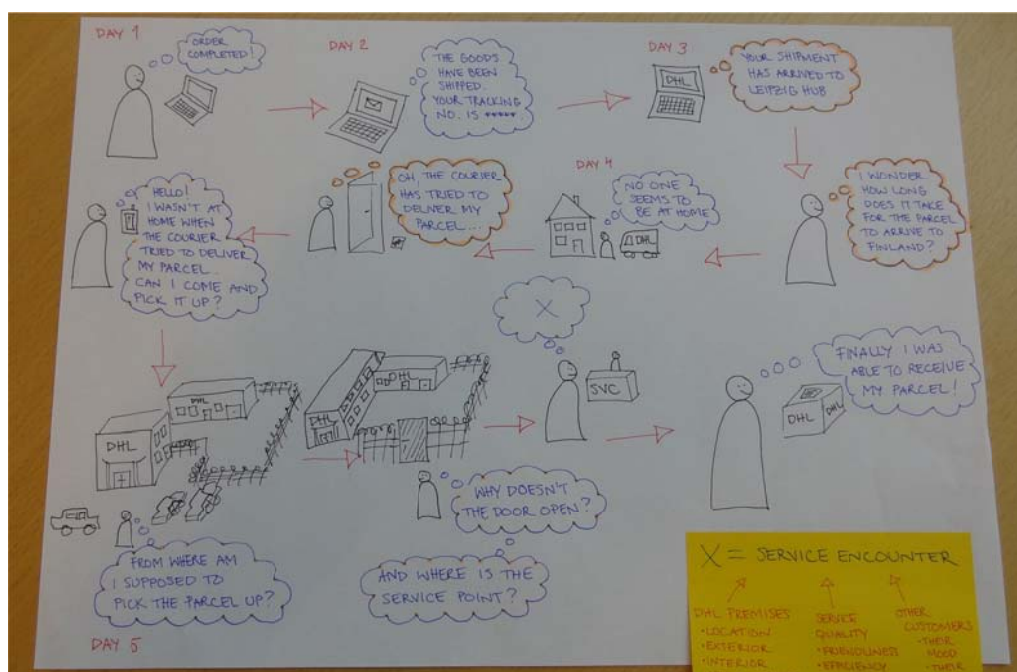 DAY 1
ORDER
COMPLETED!
DAY 2
THE GOODS
HAVE BEEN
SHIPPED.
YOUR TRACKING
NO. IS *****
DAY 3
DHL
YOUR SHIPMENT
HAS ARRIVED TO
LEIPZIG HUB
I WONDER
HOW LONG
DOES IT TAKE
FOR THE PARCEL
TO ARRIVE TO
FINLAND?
DAY 4
NO ONE
SEEMS TO
BE AT HOME
DHL
OH, THE COURIER
HAS TRIED TO
DELIVER MY
PARCEL...
HELLO!
I WASN'T AT
HOME WHEN
THE COURIER
TRIED TO DELIVER
MY PARCEL.
CAN I COME AND
PICK IT UP?
DHL
DHL
FROM WHERE AM
I SUPPOSED TO
PICK THE PARCEL UP?
DAY 5
DHL
DHL
WHY DOESN'T
THE DOOR OPEN?
AND WHERE IS THE
SERVICE POINT?
X
SVC
FINALLY I WAS
ABLE TO RECEIVE
MY PARCEL!
DHL
DHL
X = SERVICE ENCOUNTER
DHL PREMISES
• LOCATION
• EXTERIOR
• INTERIOR
SERVICE
QUALITY
• FRIENDLINESS
• EFFICIENCY
OTHER
CUSTOMERS
• THEIR
MOOD
• THEIR